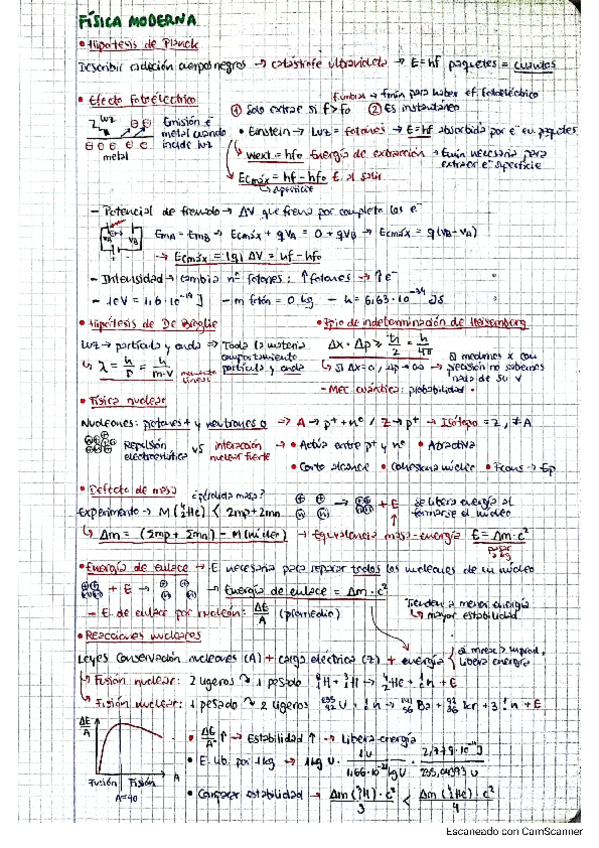 FÍSICA MODERNA
• Hipótesis de Planck
Describir radiación cuerpos negros → catástrofe ultravioleta → E=hf paquetes = cuantos
umbral → fmin para haber ef. fotoeléctrico
• Efecto fotoeléctrico ① Solo extrae si f>f₀ ② Es instantáneo
Luz Emisión e⁻ metal cuando incide luz
metal
• Einstein → Luz = fotones → E=hf absorbida por e⁻ en paquetes
Wext = hf₀ Energía de extracción → Emin necesaria para extraer e⁻ superficie
Ecmáx = hf - hf₀ E al salir
superficie
- Potencial de frenado → ΔV que frena por completo los e⁻
EmA = EmB → Ecmáx + qVA = 0 + qVB → Ecmáx = q(VB-VA)
→ Ecmáx = |q| ΔV = hf - hf₀
- Intensidad → cambia nº fotones: ↑ fotones → ↑ e⁻
- 1eV = 1,6·10⁻¹⁹ J - m fotón = 0 kg - h = 6,63·10⁻³⁴ Js
• Hipótesis de De Broglie • Ppio de indeterminación de Heisemberg
Luz → partícula y onda ⇒ Toda la materia comportamiento partícula y onda
λ = h/p = h/m·v momento lineal
Δx · Δp ≥ ħ/2 = h/4π
Si Δx=0, Δp → ∞ → Si medimos x con precisión no sabemos nada de su v
- Mec cuántica: probabilidad
• Física nuclear
Nucleones: protones + y neutrones 0 ⇒ A → p⁺ + n⁰ / Z → p⁺ → Isótopo = Z, ≠ A
Repulsión electroestática vs interacción nuclear fuerte → • Actúa entre p⁺ y n⁰ • Atractiva
• Corto alcance • Cohesiona núcleo • Fcons → Ep
• Defecto de masa ¿pérdida masa?
Experimento → M(⁴₂He) < 2mp + 2mn
+ E se libera energía al formarse el núcleo
Δm = (Σmp + Σmn) - M(núcleo) → Equivalencia masa-energía E = Δm·c²
• Energía de enlace → E necesaria para separar todos los nucleones de un núcleo
+ E → Energía de enlace = Δm·c²
- E. de enlace por nucleón: ΔE/A (promedio)
Tienden a menor energía → mayor estabilidad
• Reacciones nucleares
Leyes conservación nucleones (A) + carga eléctrica (Z) + energía { si mreac > mprod, libera energía
Fusión nuclear: 2 ligeros → 1 pesado ²₁H + ³₁H → ⁴₂He + ¹₀n + E
Fisión nuclear: 1 pesado → 2 ligeros ²³⁵₉₂U + ¹₀n → ¹⁴¹₅₆Ba + ⁹²₃₆Kr + 3 ¹₀n + E
ΔE/A
Fusión Fisión A
A=40
• ΔE/A ↑ → Estabilidad ↑ → Libera energía
• E. lib. por 1kg → 1kg U · 1U
• Comparar estabilidad → Δm(³₁H)·c²/3 < Δm(⁴₂H)·c²/4
Escaneado con CamScanner